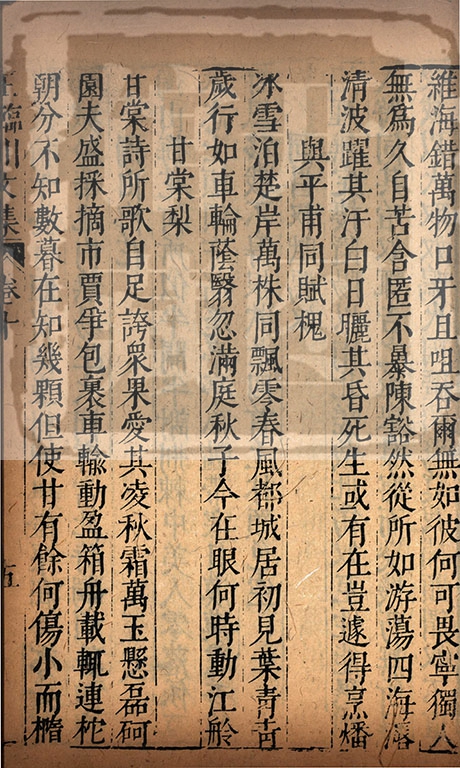 維海錯萬物口牙且咀吞爾無如彼何可畏寧獨人
無爲久自苦含匿不暴陳豁然從所如游蕩四海
清波躍其汗白日曬其昏死生或有在豈遽得烹燔
與平甫同賦槐
冰雪泊楚岸萬株同飄零春風都城居初見葉靑靑
歲行如車輪蔭翳忽滿庭秋子今在眼何時動江舲
甘棠梨
甘棠詩所歌自足誇衆果愛其凌秋霜萬玉懸磊砢
園夫盛採摘市賈爭包裹車輸動盈箱舟載輒連柁
朝分不知數暮在知幾顆但使甘有餘何傷小而橢
王臨川文集 卷十 五